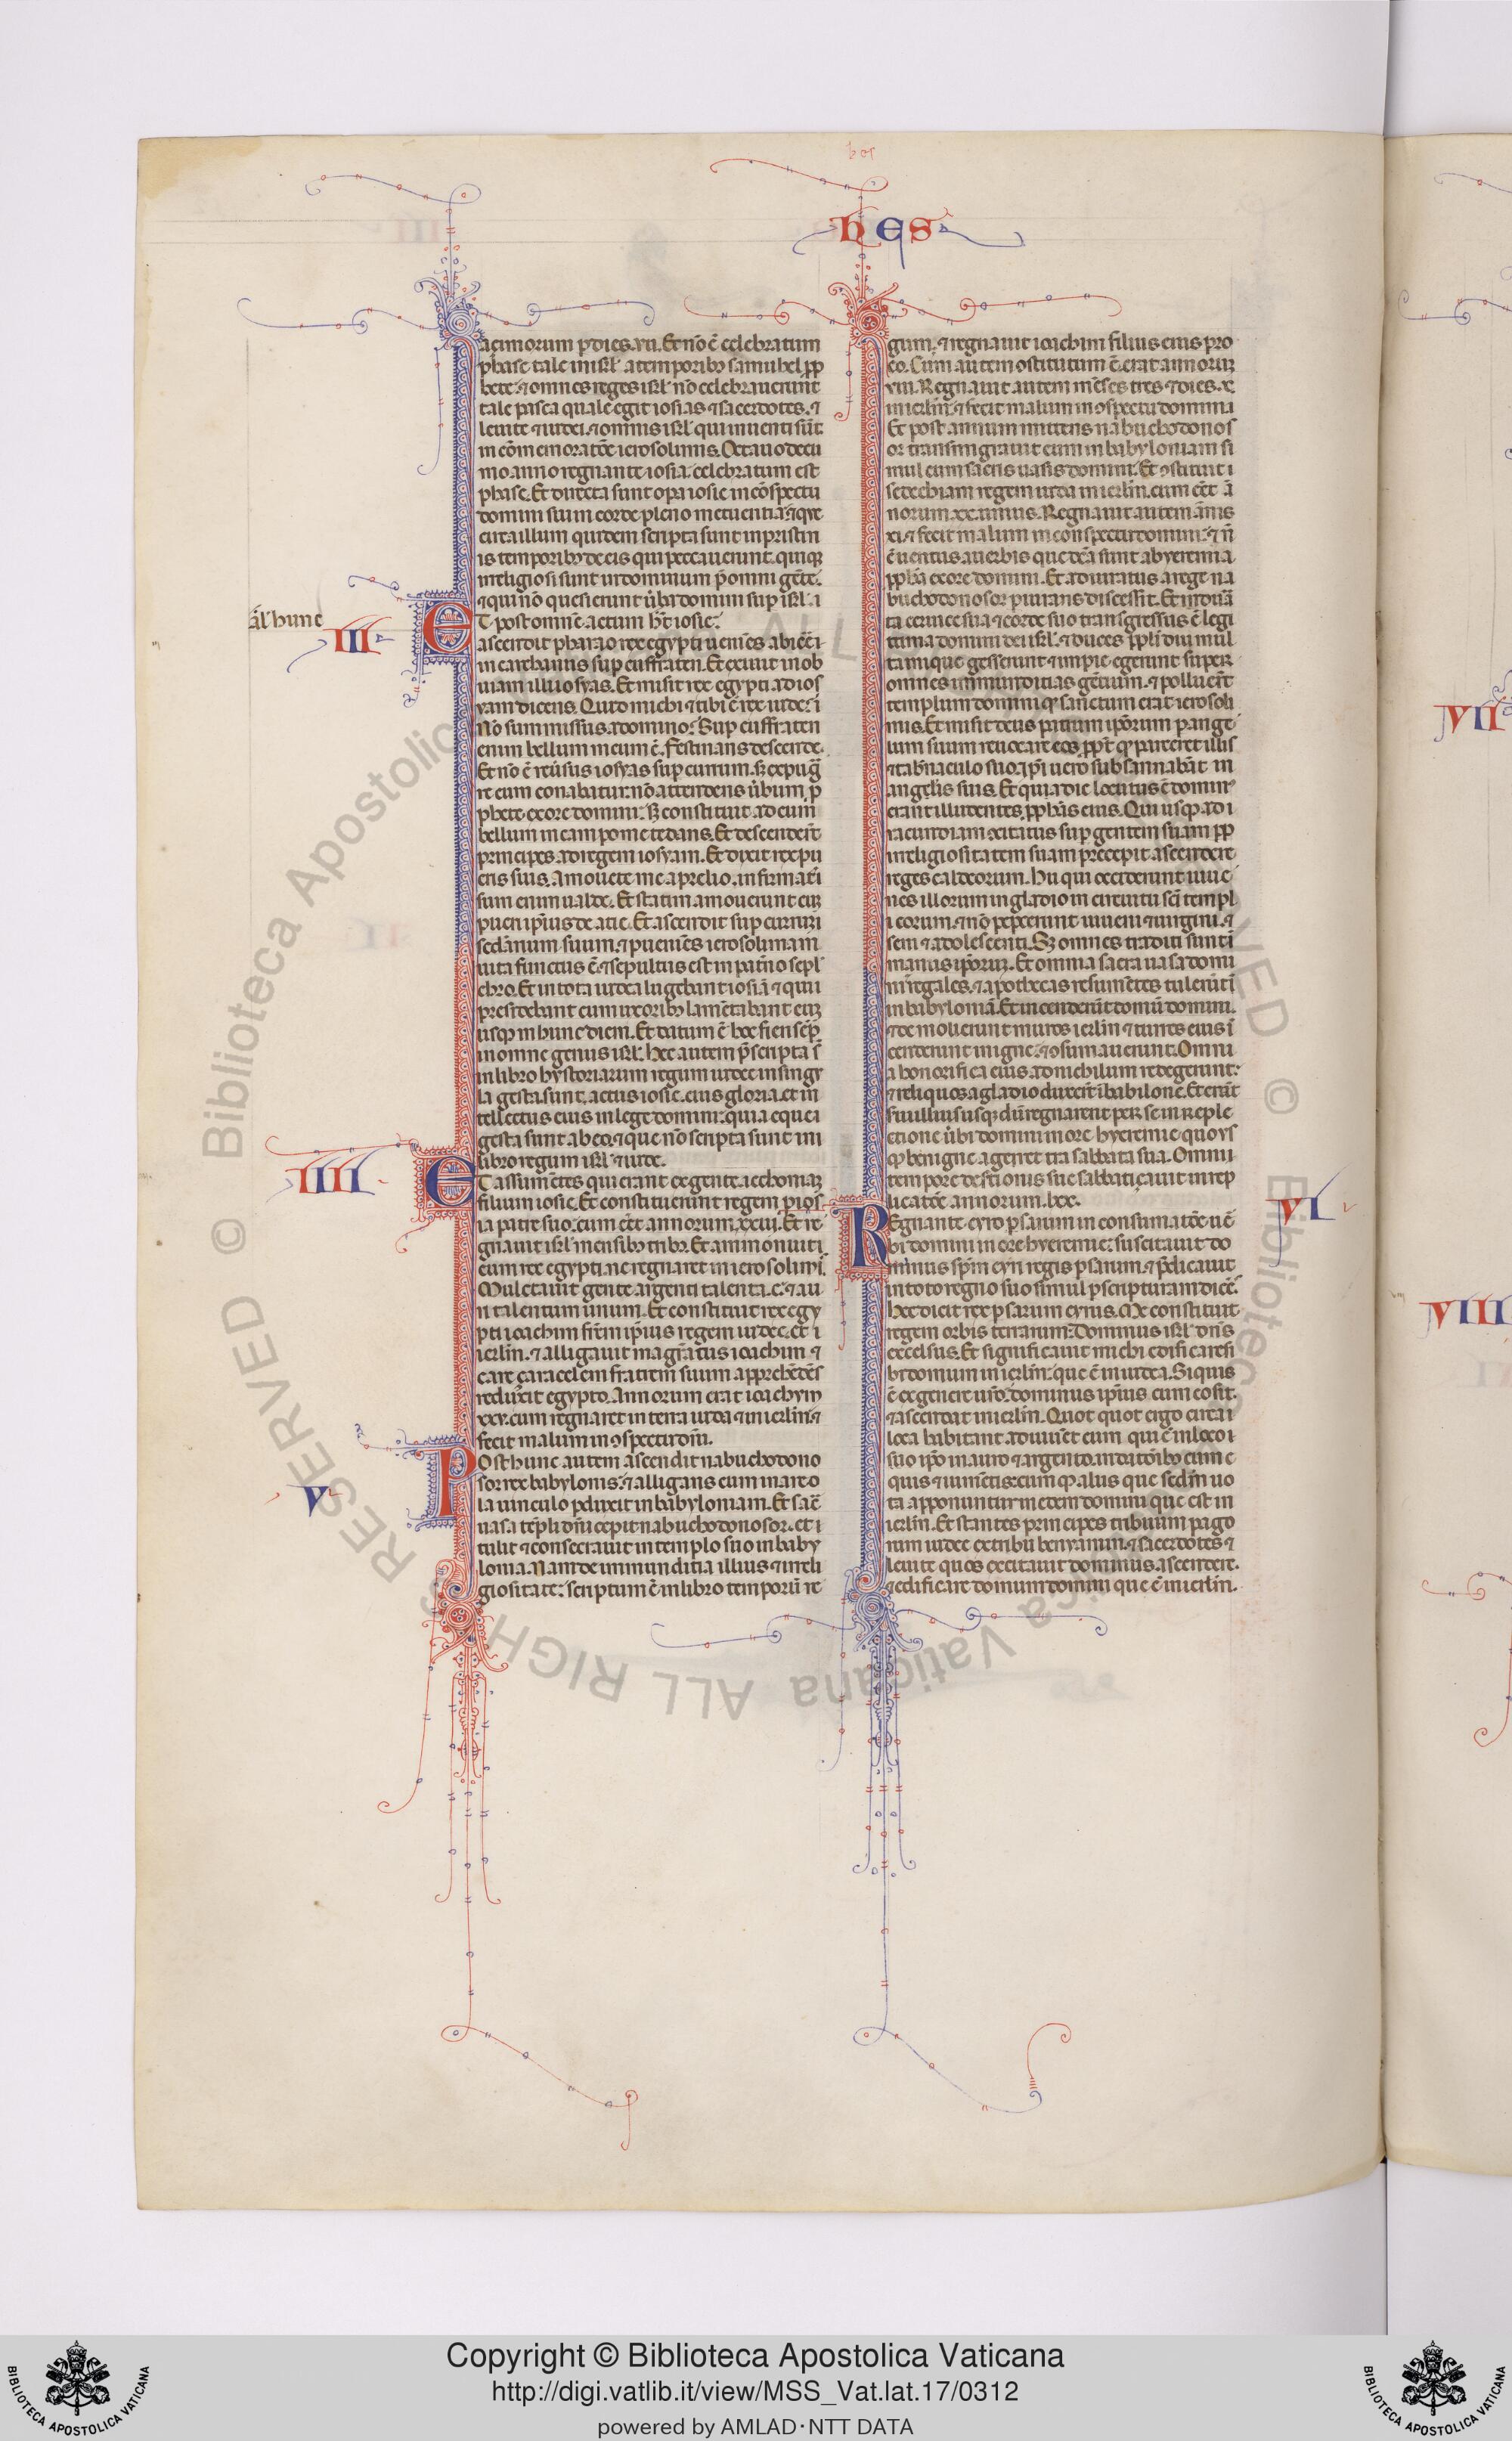 hes
azimorum p dies .vii. Et nō ē celebratum
phase tale in isrl' a temporibȝ samuhel pp
hete. ⁊ omnes reges isrl' nō celebrauerunt
tale pasca quale egit iosias ⁊ sacerdotes. ⁊
leuite ⁊ iudei. ⁊ omnis isrl' qui inuenti sūt
in cōmemoratōe ierosolimis. Octauodeci
mo anno regnante iosia celebratum est
phase. Et directa sunt opa iosie in cōspectu
domini sui in corde pleno
circa illum quidem scripta sunt in pristin
is temporibȝ de eis qui peccauerunt. quiqȝ
irreligiosi sunt in dominum p̄ omni gēte.
⁊ qui nō quesierunt ūba domini sup isrl'. i
al' hunc
III
ET post omnē actum h̄c iosie.
ascendit pharao rex egypti ueniēs
in carchamis sup euffraten. Et exiuit in ob
uiam illi iosyas. Et misit rex egypti ad ios
yam dicens. Quid michi ⁊ tibi ē rex iude. i
Nō sum missus a domino. Sup euffraten
enim bellum meum ē. festinans descende.
Et nō ē reuersus iosyas sup currum. sȝ expug̃
re eum conabatur. nō attendens ūbum p
phete ex ore domini. Sȝ constituit ad eum
bellum in campo metedans. Et descenderūt
principes ad regem iosyam. Et dixit rex pu
eris suis. Amouete me a prelio. infirmat'
sum enim ualde. Et statim amouerunt eū
pueri ipsius de acie. Et ascendit sup currum
secdānum suum. ⁊ pueniēs ierosolimam
uita functus ē. ⁊ sepultus est in pat'no sepl
chro. Et in tota iudea lugebant iosiā ⁊ qui
presidebant cum uxoribȝ lamētabant eū
usqȝ in hunc diem. Et datum ē hoc fieri semp
in omne genus isrl'. Hec autem p̄scripta s̄
in libro hystoriarum regum iudee. in singl
la gesta sunt. actus iosie. eius gloria. et in
tellectus eius in lege domini. quia eque a
gesta sunt ab eo. ⁊ que nō scripta sunt ini
libro regum isrl' ⁊ iude.
IIII
ET assumētes qui erant ex gente. iechoniaȝ
filium iosie. Et constituerunt regem p ios
ia patre suo. cum eēt annorum .xxiii. Et re
gnauit isrl' mensibȝ tribȝ. Et ammonuit i
eum rex egypti. ne regnaret in ierosolimi.
Mulctauit gente argenti talenta .c. ⁊ au
ri talentum unum. Et constituit rex egy
pti ioachim frēm ipsius regem iudee. et i
ierlm. ⁊ alligauit magratus ioachim ⁊
care zaracelem fratrem suum apprehēdēs
reduxit egypto. Annorum erat ioachym
xxv. cum regnaret in terra iuda ⁊ in ierlm. ⁊
fecit malum in ɔspectu dn̄i.
V
POst hunc autem ascendit nabuchodono
sor rex babylonis. ⁊ alligans eum in areo
la uinculo pduxit in babyloniam. Et sac̄
uasa tēpli dn̄i cepit nabuchodonosor. et i
tulit ⁊ consecrauit in templo suo in baby
lonia. Nam de inmunditia illius ⁊ irreli
giositate. scriptum ē in libro temporū re
gum. ⁊ regnauit ioachim filius eius pro
eo. Cum autem ɔstitutum ē. erat annorum
viii. Regnauit autem mēses tres ⁊ dies .x.
in ierlm. ⁊ fecit malum in ɔspectu domini
Et post annum mittens nabuchodonos
or transmigrauit eum in babyloniam si
mul cum sacris uasis domini. Et ɔstituit i
sedechiam regem iuda in ierlm. cum eēt ā
norum xx. unius. Regnauit autem ānis
xi. ⁊ fecit malum in conspectu domini. ⁊ n̄
ē ueritus a uerbis que dc̄a sunt ab yeremia
pph̄a ex ore domini. Et adiuratus a rege na
buchodonosor piurans discessit. Et indura
ta ceruice sua ⁊ corde suo transgressus ē legi
tima domini dei isrl'. ⁊ duces ppli dn̄i mul
ta inique gesserunt ⁊ impie egerunt super
omnes inmunditias gētium. ⁊ polluerūt
templum domini qȝ sanctum erat ierosoli
mis. Et misit deus patrum ipsorum p ange
lum suum reuocare eos. ppt qȝ parceret illis
⁊ tabnaculo suo. ipi uero subsannabāt in
angelis suis. Et qua die locutus ē domin'
erant illudentes pph̄is eius. Qui usqȝ ad i
racundiam ɔcitatus sup gentem suam pp
irreligiositatem suam precepit ascendere
reges caldeorum. Hii qui occiderunt iuue
nes illorum in gladio in circuitu sc̄i templ
i eorum. ⁊ nō pepercerunt iuueni ⁊ uirgini. ⁊
seni ⁊ adolescenti. Sȝ omnes traditi sunt i
manus ipsoruȝ. Et omnia sacra uasa domi
ni regales. ⁊ apothecas resumētes tulerūt i
in babyloniā. Et incenderūt domū domini.
⁊ demolierunt muros ierlm ⁊ turres eius ī
cenderunt in igne. ⁊ ɔsumauerunt. Omni
a honorifica eius. ad nichilum redegerunt.
⁊ reliquos a gladio duxerūt ī babilone. Et erāt
serui illius usqȝ dū regnarent perse in reple
ctione ūbi domini in ore hyeremie. quo us
qȝ benigne ageret terra sabbata sua. Omni
tempore desertionis sue sabbatizauit in rep
licatōe annorum .lxx.
VI
REgnante cyro psarum in consumatōe uē
bi domini in ore hyeremie. suscitauit do
minus spm cyri regis psarum. ⁊ pdicauit
in toto regno suo simul p scripturam dicēs.
Hec dicit rex psarum cyrus. Me constituit
regem orbis terrarum. Dominus isrl' dn̄s
excelsus. Et significauit michi edificare si
bi domum in ierlm. que ē in iudea. Si quis
ē ex genere uro. dominus ipsius cum eo sit.
⁊ ascendat in ierlm. Quot quot ergo circa i
loca habitant. adiuuēt eum qui ē in loco i
suo ipo in auro ⁊ argento. in datōibȝ cum e
quis ⁊ iumētis. ⁊ cum qȝ aliis que sedm uo
ta apponuntur in edem domini que est in
ierlm. Et stantes principes tribuum pago
rum iudee ex tribu benyamin. ⁊ sacerdotes ⁊
leuite quos excitauit dominus. ascendere.
⁊ edificare domum domini que ē in ierlm.
VII
VIII
Copyright © Biblioteca Apostolica Vaticana
http://digi.vatlib.it/view/MSS_Vat.lat.17/0312
powered by AMLAD·NTT DATA
BIBLIOTECA APOSTOLICA VATICANA
BIBLIOTECA APOSTOLICA VATICANA
© Biblioteca Apostolica Vaticana ALL RIGHTS RESERVED